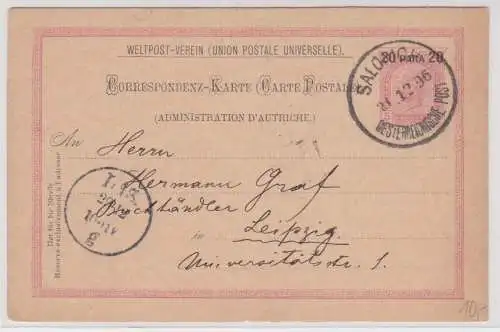 WELTPOST-VEREIN (UNION POSTALE UNIVERSELLE).
20 PARA 20
CORRESPONDENZ-KARTE (CARTE POSTALE
(ADMINISTRATION D'AUTRICHE.)
OESTERREICHISCHE POST
An Herrn
Hermann Graf
Buchhändler
in Leipzig
Universitätsstr. 1.
Nur für die Adresse
Réservé exclusivement à l'adresse
10,-